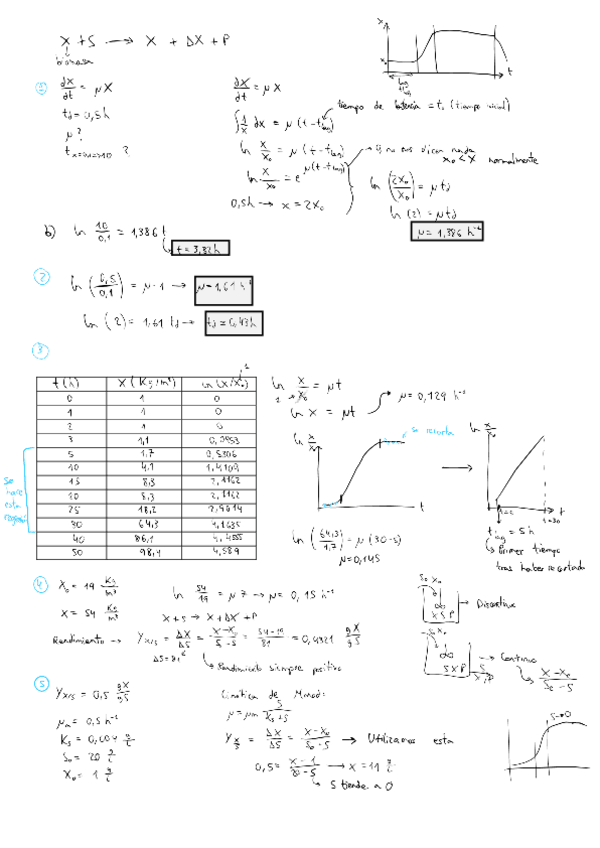 X + S → X + ΔX + P
biomasa
x
x₀
lag
t
① dx/dt = μX
td = 0,5h
μ?
dx/dt = μX
∫ 1/x dx = μ(t - tlag)
tiempo de latencia = t₀ (tiempo inicial)
ln x/x₀ = μ(t - tlag)
ln x/x₀ = e^μ(t-tlag)
0,5h → x = 2x₀
si no nos dicen nada
x₀ < x normalmente
ln (2x₀/x₀) = μtd
ln (2) = μtd
μ = 1,386 h⁻¹
b) ln 10/0,1 = 1,386 t
t = 3,32 h
② ln (0,5/0,1) = μ·1 → μ = 1,61 h⁻¹
ln (2) = 1,61 td → td = 0,43 h
③
t (h) X (Kg/m³) ln (x/x₀)
0 1 0
1 1 0
2 1 0
3 1,1 0,0953
5 1,7 0,5306
10 4,1 1,4109
15 8,3 2,1162
20 8,3 2,1162
25 18,2 2,9014
30 64,3 4,1635
40 86,1 4,455
50 98,4 4,589
Se hace esta
ln x/x₀ = μt
ln x = μt
μ = 0,129 h⁻¹
ln x/x₀
se recorta
t
ln x/x₀
t
t=30
ln (64,3/1,7) = μ(30-5)
μ = 0,145
tlag = 5h
Primer tiempo
tras haber recortado
④ X₀ = 19 Kg/m³
X = 54 Kg/m³
ln 54/19 = μ 7 → μ = 0,15 h⁻¹
X + S → X + ΔX + P
Rendimiento → Yx/s = ΔX/ΔS = X-X₀/S₀-S = 54-19/81 = 0,4321 gX/gS
ΔS = 81
Rendimiento siempre positivo
S₀ X₀
X S P
Discontinuo
S₀ X₀
S X P
Continuo
X-X₀/S₀-S
⑤ Yx/s = 0,5 gX/gS
μm = 0,5 h⁻¹
Ks = 0,004 g/L
S₀ = 20 g/L
X₀ = 1 g/L
Cinética de Monod:
μ = μm S/Ks+S
Yx/s = ΔX/ΔS = X-X₀/S₀-S → Utilizamos esta
0,5 = X-1/20-S → X = 11 g/L
S tiende a 0
S→0